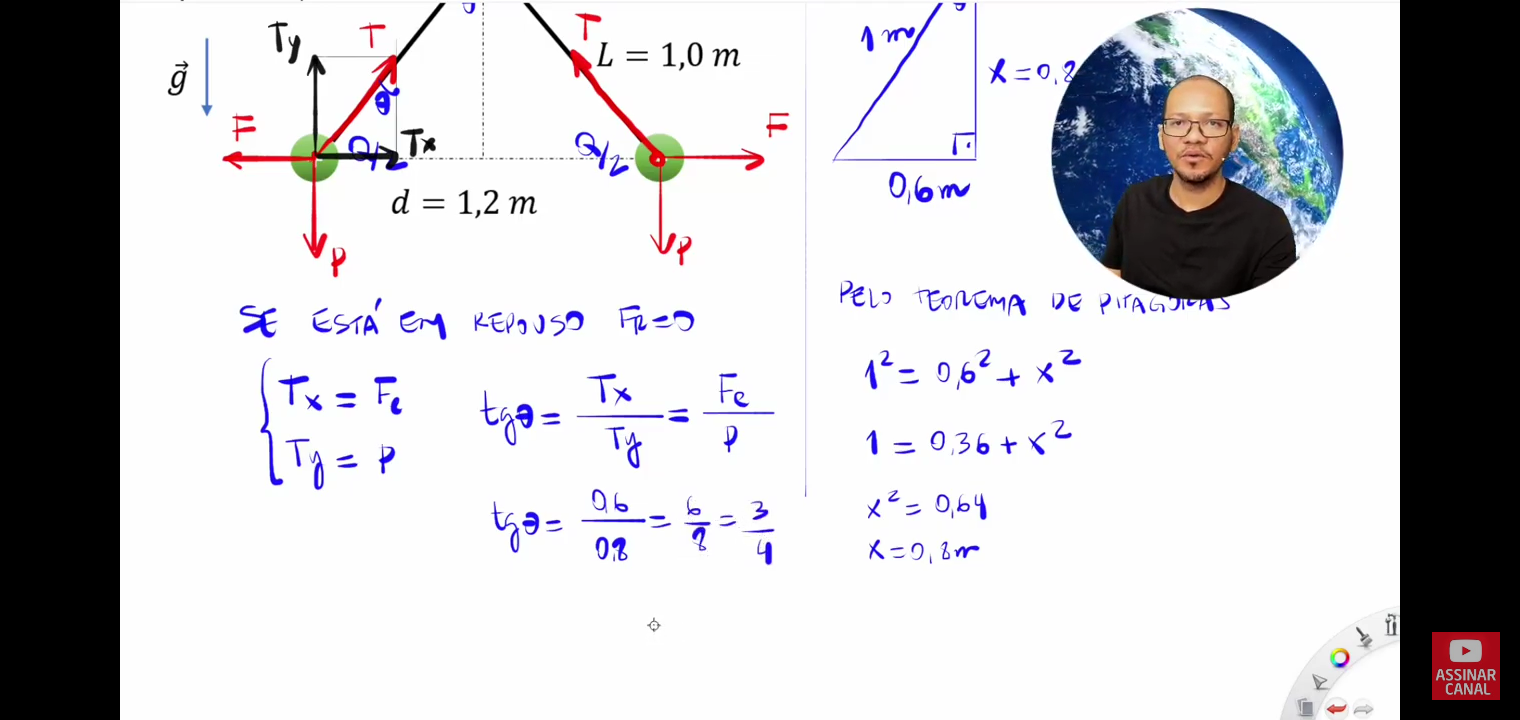 Ty
T
g
F
Tx
θ
Q/2
P
d = 1,2 m
T
L = 1,0 m
Q/2
F
P
1 m
x = 0,8
0,6 m
SE ESTÁ EM REPOUSO FR = 0
Tx = Fe
Ty = P
tgθ = Tx/Ty = Fe/P
tgθ = 0,6/0,8 = 6/8 = 3/4
PELO TEOREMA DE PITAGORAS
1² = 0,6² + x²
1 = 0,36 + x²
x² = 0,64
x = 0,8m
ASSINAR
CANAL